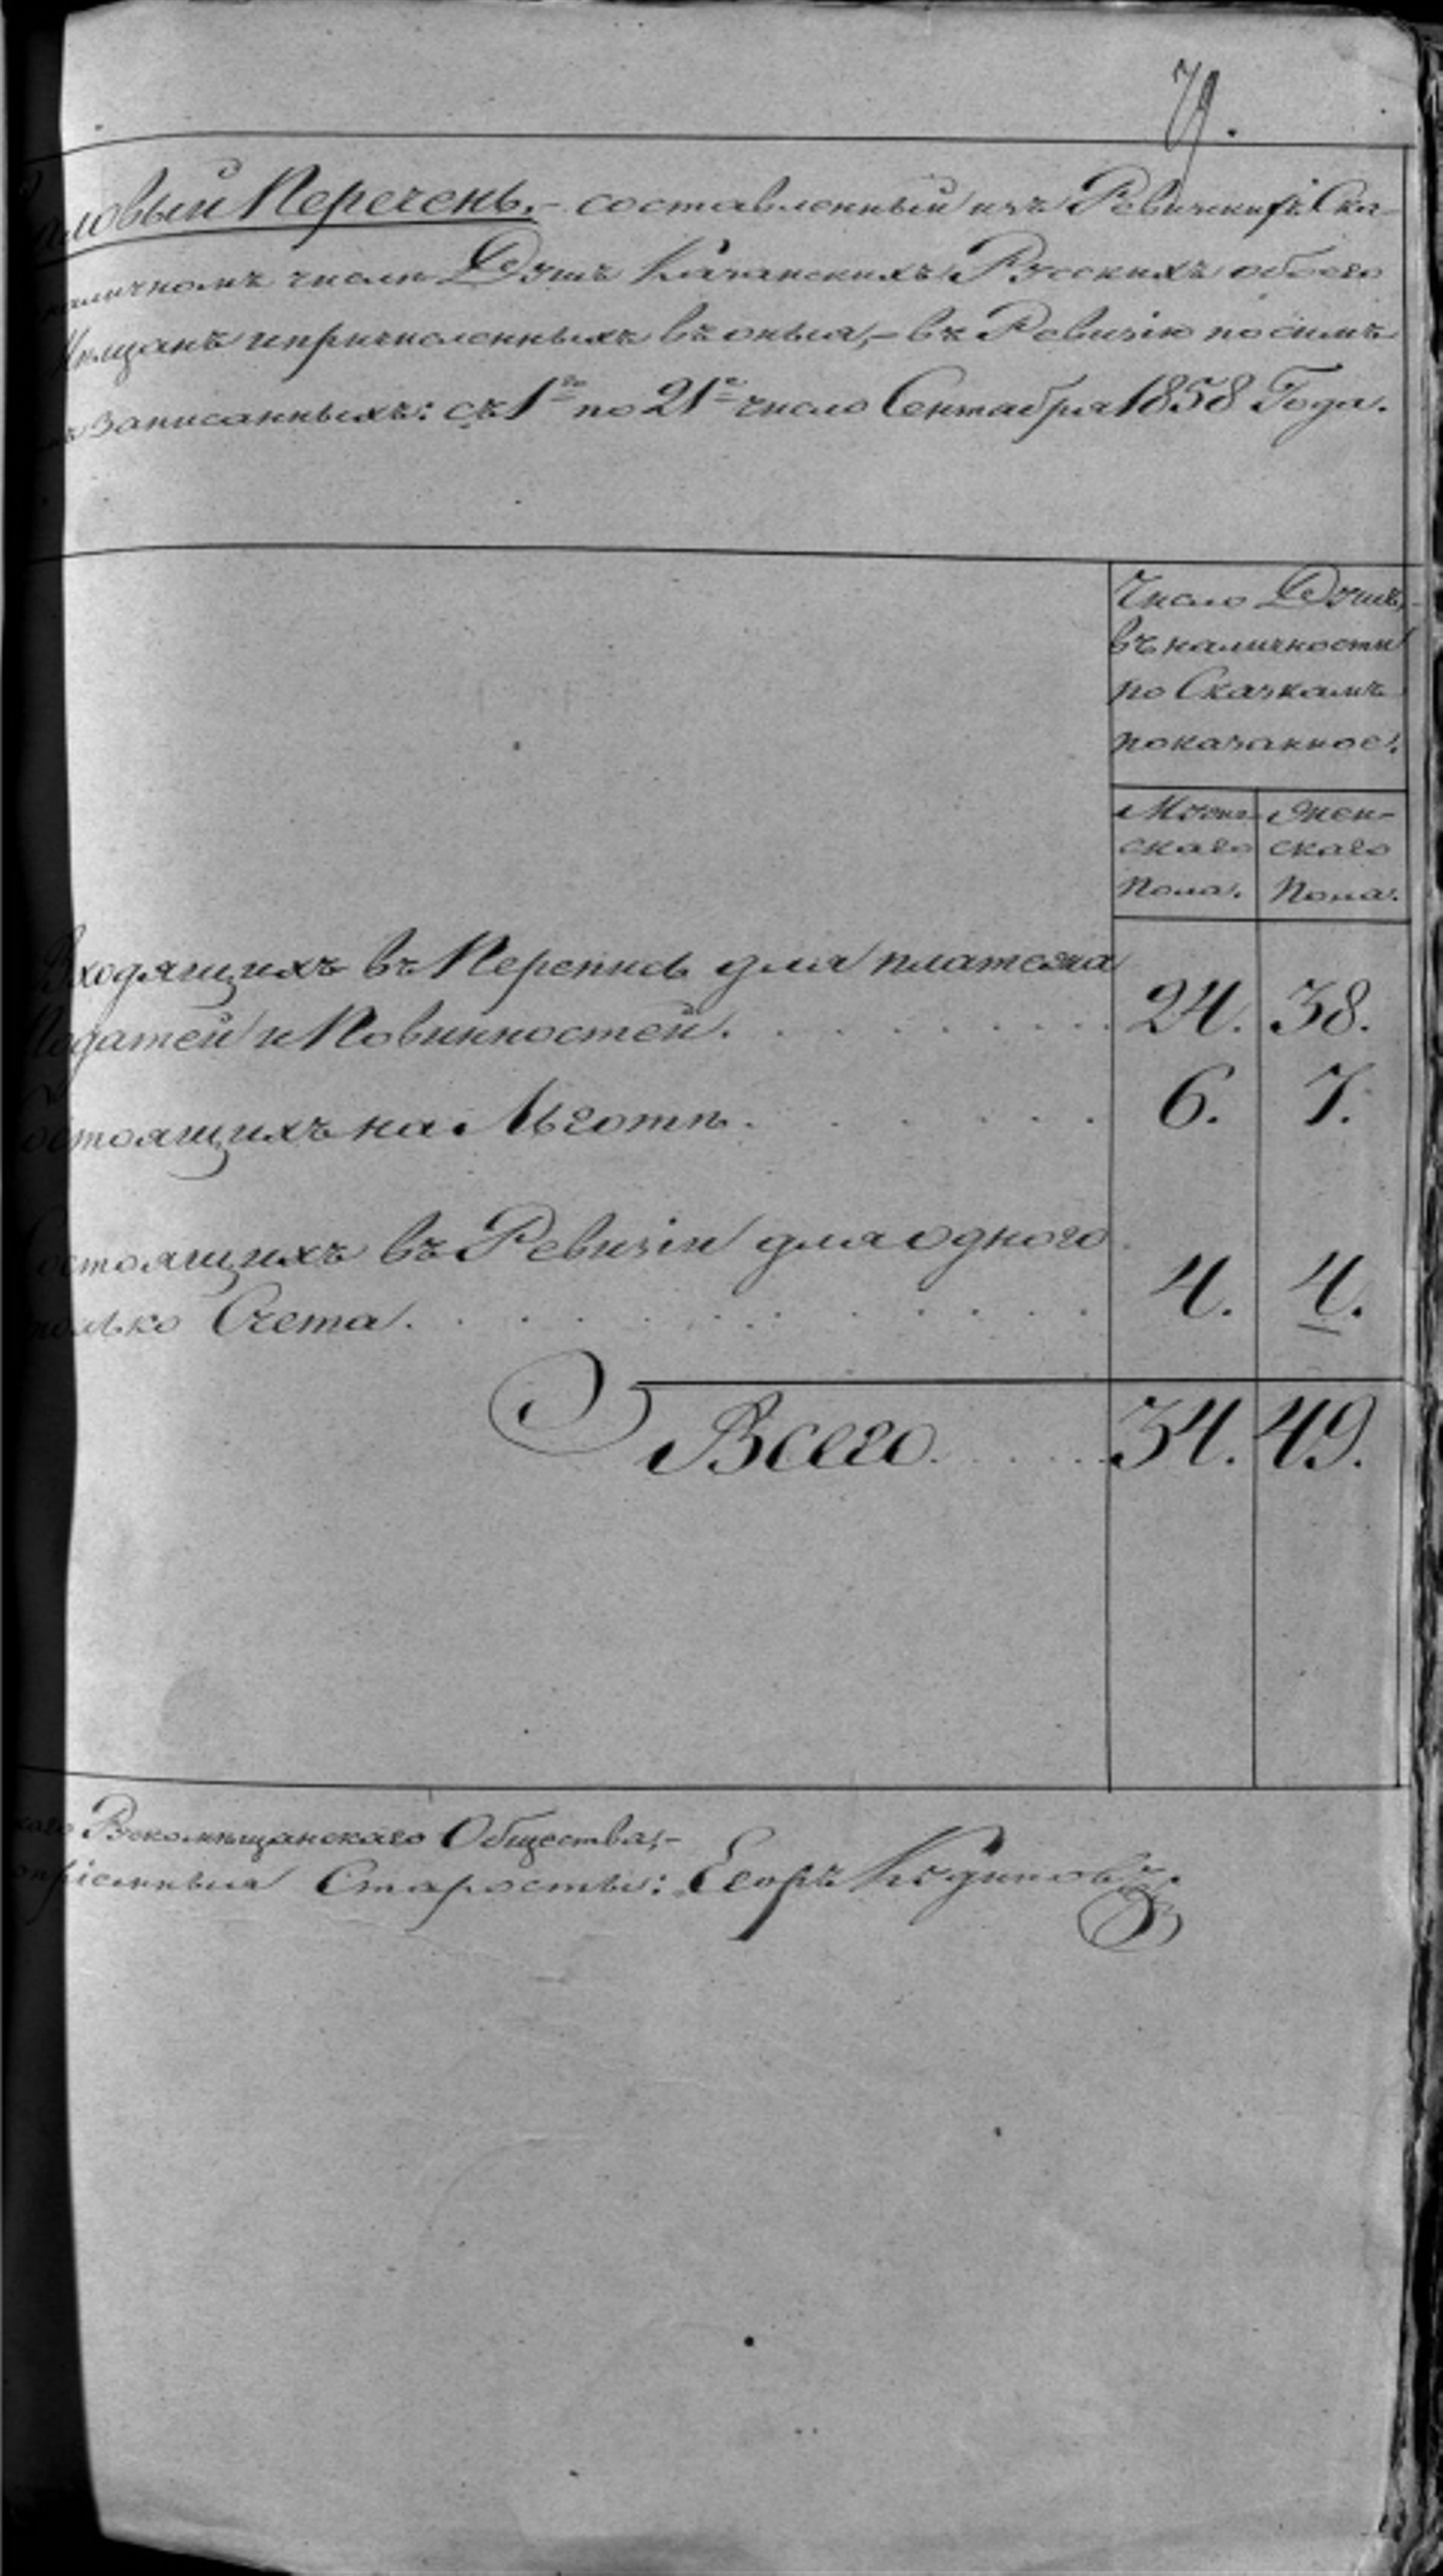 79.
аловый Перечень.- составленный изъ Ревизскихъ Ска-
наличномъ числѣ Душъ Казанскихъ Русскихъ обоего
Мѣщанъ и причисленныхъ въ оныя,- въ Ревизію по симъ
записанныхъ: съ 1го по 21е число Сентября 1858 Года.
Число Душъ,
въ наличности
по Сказкамъ
показанное.
Муже- Жен-
скаго скаго
Пола. Пола.
Входящихъ въ Перепись для платежа
Податей и Повинностей. 24. 38.
Состоящихъ на Льготѣ. 6. 7.
Состоящихъ въ Ревизіи для одного
только Счета. 4. 4.
Всего 34. 49.
Рускомѣщанскаго Общества,-
Старосты: Егоръ